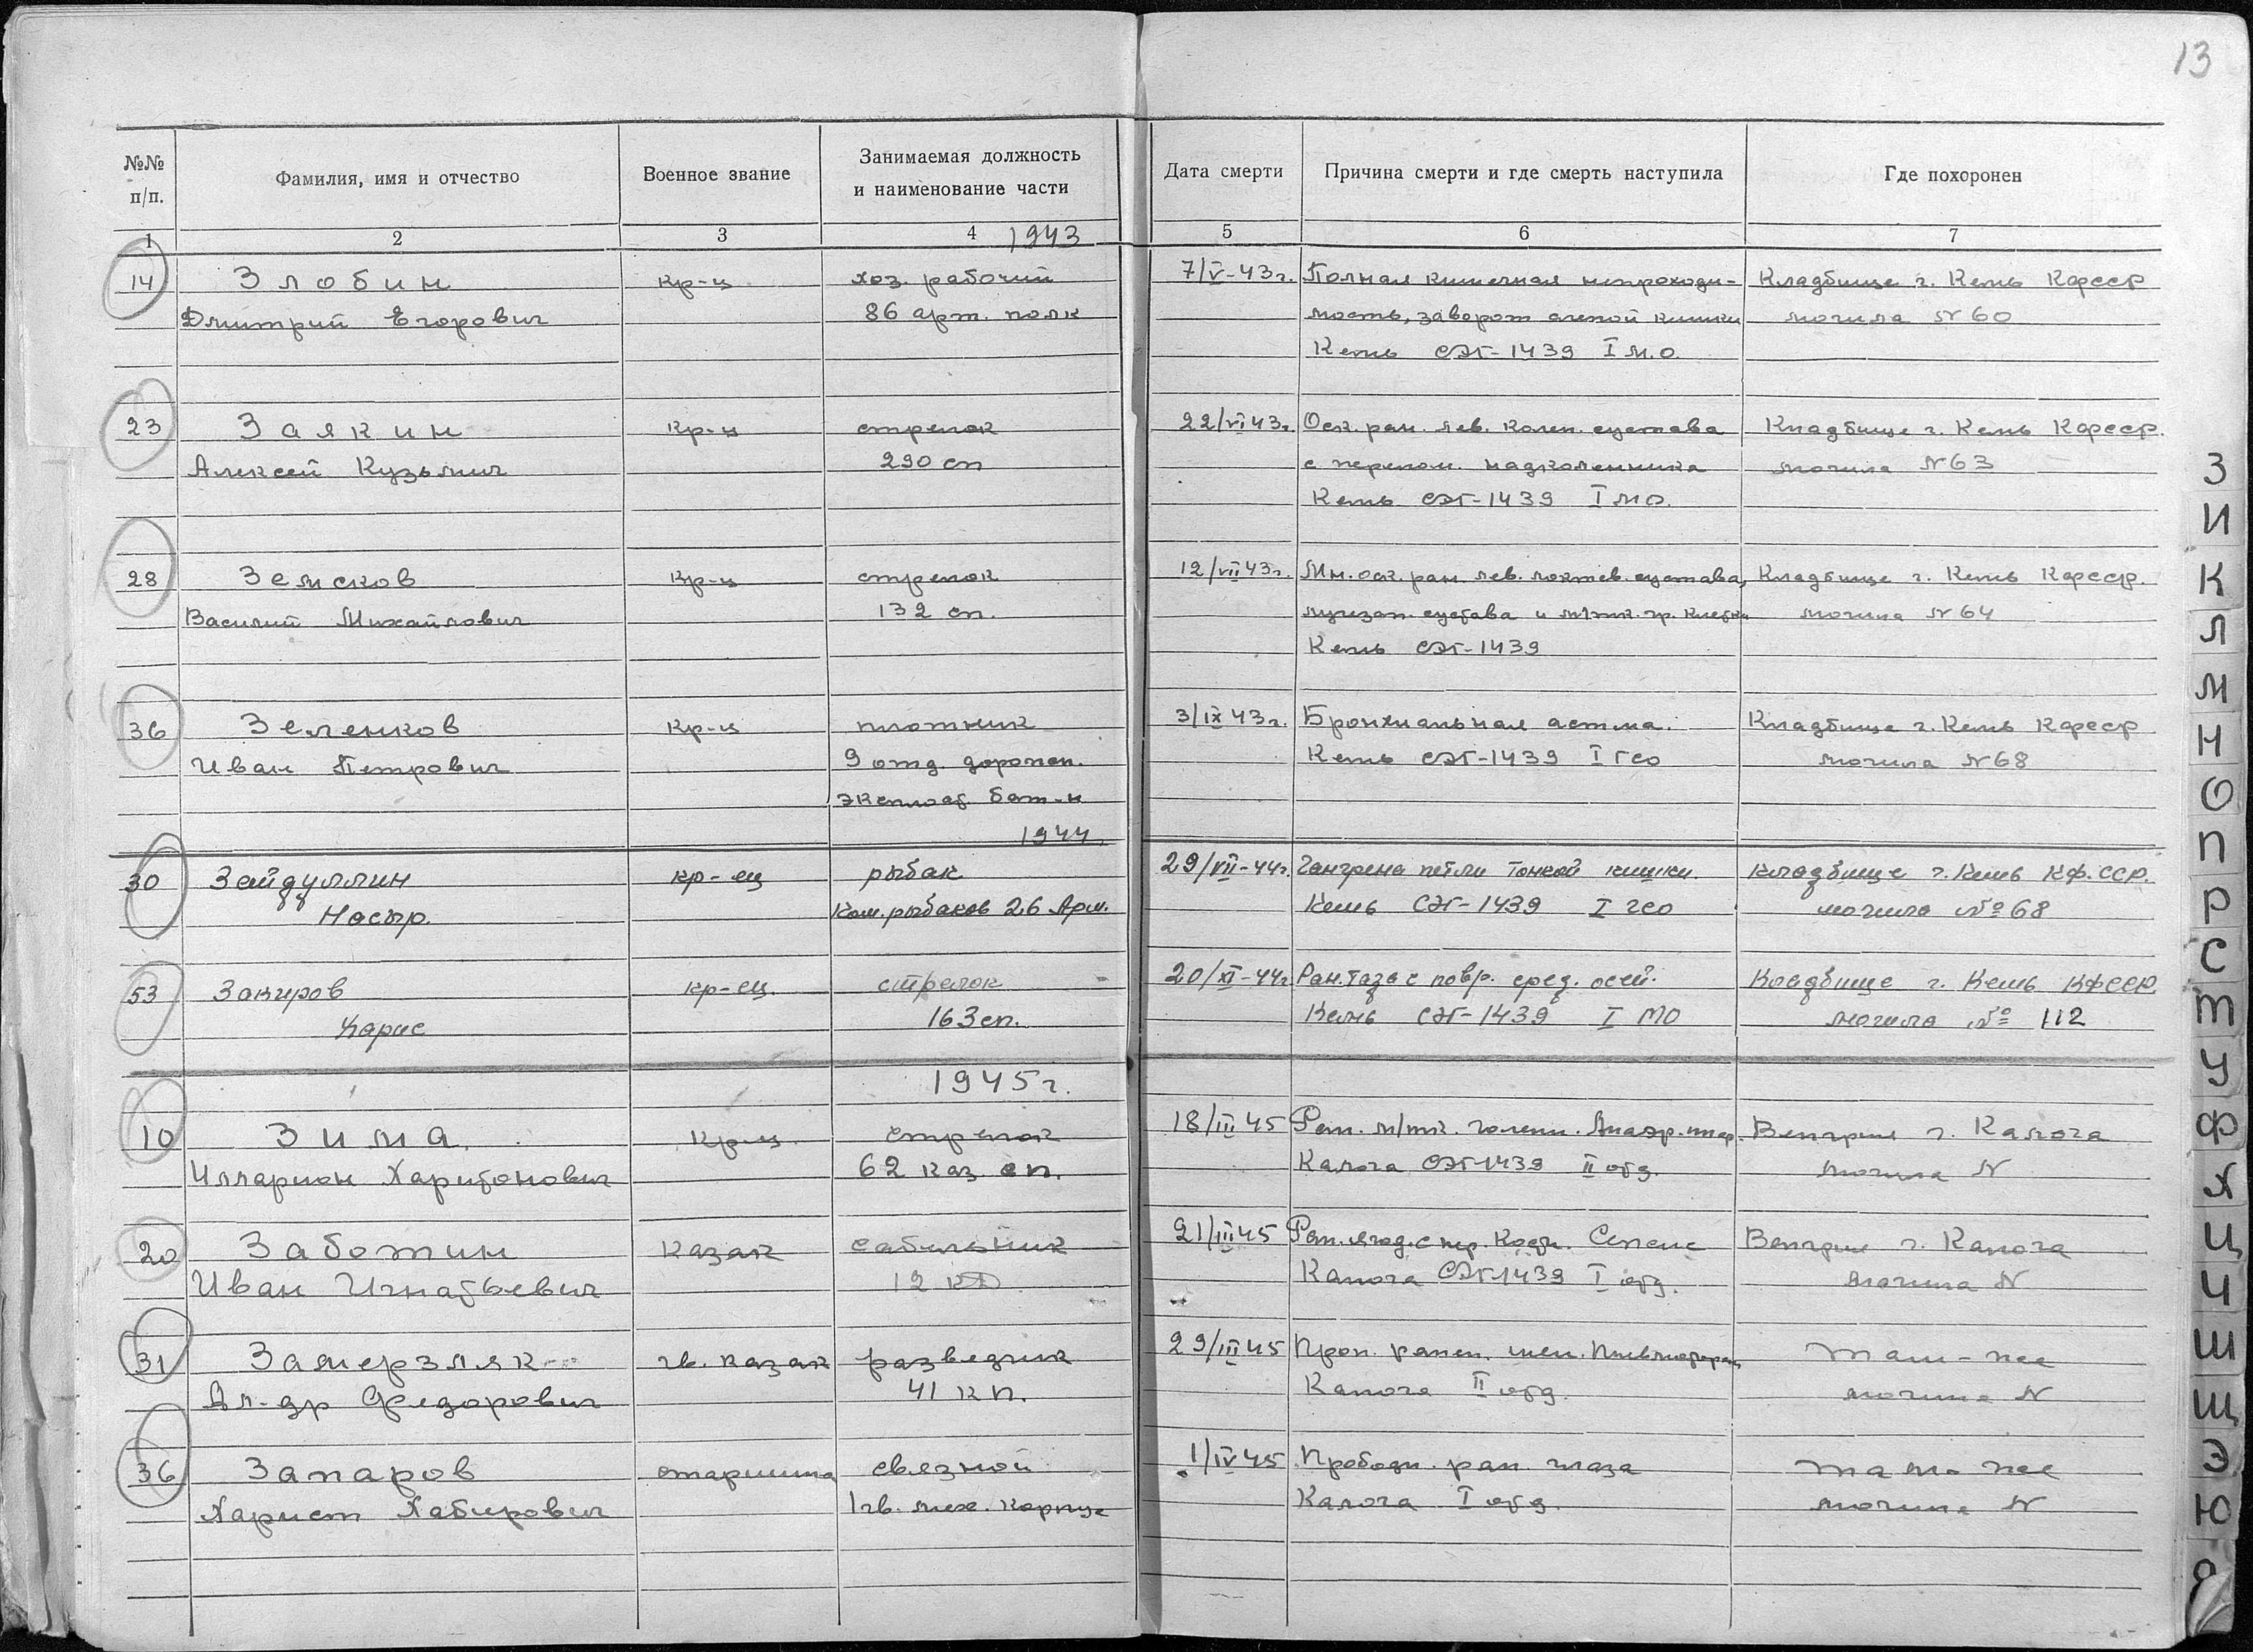 13
№№ п/п. Фамилия, имя и отчество Военное звание Занимаемая должность и наименование части Дата смерти Причина смерти и где смерть наступила Где похоронен
1 2 3 4 1943 5 6 7
14 Злобин кр-ц хоз. рабочий 7/V-43г. Полная кишечная непроходи- Кладбище г. Кемь Кфсср
Дмитрий Егорович 86 арт. полк мость, заворот слепой кишки могила N 60
Кемь СЭГ-1439 I М.О.
23 Заякин кр-ц стрелок 22/VI 43г. Оск. ран. лев. колен. сустава Кладбище г. Кемь Кфсср.
Алексей Кузьмич 290 сп с перелом. надколенника могила N 63
Кемь СЭГ-1439 I МО.
28 Земсков кр-ц стрелок 12/VII 43г. Мн. оск. ран. лев. локтев. сустава, Кладбище г. Кемь Кфсср.
Василий Михайлович 132 сп. лучезап. сустава и м/тк. гр. клетки могила N 64
Кемь СЭГ-1439
36 Зеленков кр-ц плотник 3/IX 43г. Бронхиальная астма. Кладбище г. Кемь Кфсср
Иван Петрович 9 отд. дорожн. Кемь СЭГ-1439 I ГСО могила N 68
эксплоат. бат-н
1944
30 Зейдуллин кр-ец рыбак 29/VII-44г. Гангрена петли тонкой кишки. Кладбище г. Кемь КФ.ССР.
Насыр. Ком. рыбаков 26 Арм. Кемь СЭГ-1439 I гсо могила № 68
53 Закиров кр-ец. стрелок 20/XI-44г. Ран. таза с повр. сред. осей. Кладбище г. Кемь КФССР.
Карис 163 сп. Кемь СЭГ-1439 I МО могила № 112
1945г.
10 Зима кр-ц. стрелок 18/III 45 Ран. м/тк. голени. Анаэр. инф. Венгрия г. Калоча
Илларион Харитонович 62 каз. сп. Калоча СЭГ-1439 II отд. могила N
20 Заботин казак сабельник 21/III 45 Ран. ягод. с пер. кости. Сепсис Венгрия г. Калоча
Иван Игнатьевич 12 КД Калоча СЭГ-1439 I отд. могила N
31 Замерзляк гв. казак разведчик 29/III 45 Прон. ранен. шеи. Там-же
Ал-др Федорович 41 кп. Калоча II отд. могила N
36 Запаров старшина связной 1/IV 45 Прободн. ран. глаза там же
Харист Хабирович 1 гв. мех. корпус Калоча I отд. могила N
З
И
К
Л
М
Н
О
П
Р
С
Т
У
Ф
Х
Ц
Ч
Ш
Щ
Э
Ю
Я